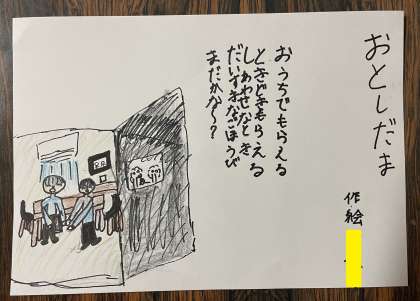 おとしだま
作・絵
おうちでもらえる
ときどきもらえる
しあわせなとき
だいすきなごほうび
まだかな〜？